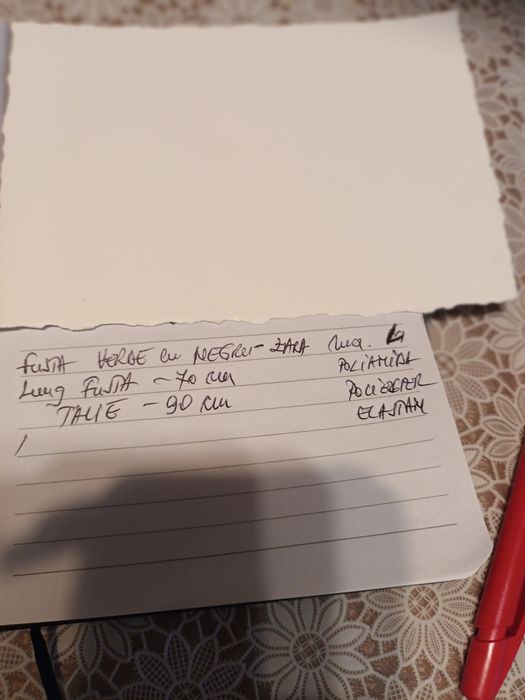 FUSTA VERDE cu NEGRU - ZARA mă. L
Lung FUSTA - 70 cm POLIAMIDA
TALIE - 90 cm POLIESTER
ELASTAN